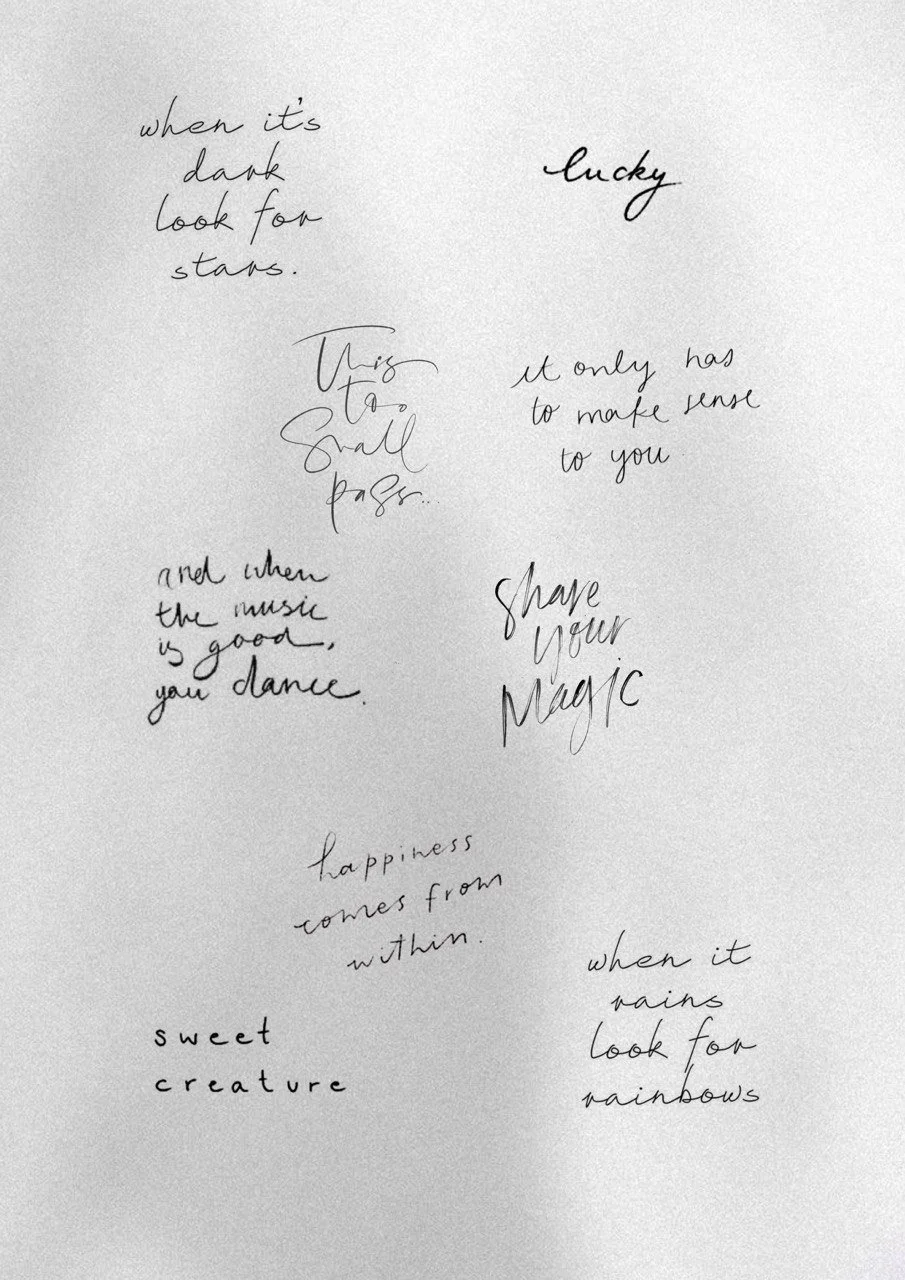 when it's
dark
look for
stars.
lucky
This
too
Shall
pass...
it only has
to make sense
to you
and when
the music
is good,
you dance.
Share
your
Magic
happiness
comes from
within.
when it
rains
look for
rainbows
sweet
creature